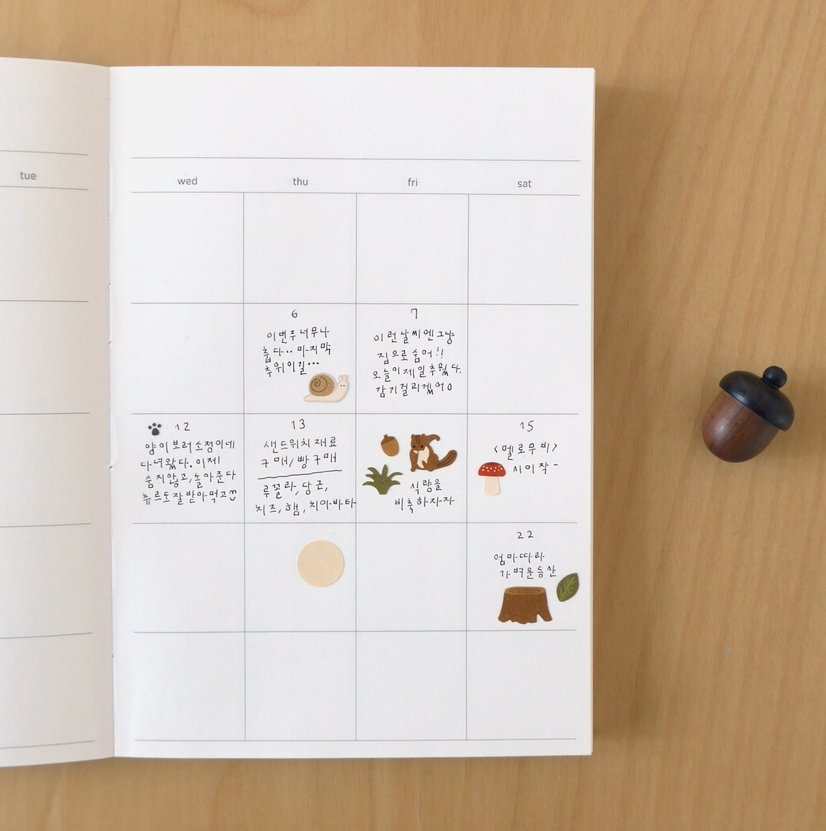 tue
wed
thu
fri
sat
6
이번주 너무나
춥다.. 마지막
추위이길...
7
이런 날씨엔 그냥
집으로 숨어!!
오늘이 제일 추웠다.
감기걸리겠어
12
양이보러 소정이네
다녀왔다. 이제
숨지않고, 놀아준다
츄르도 잘 받아먹고
13
샌드위치 재료
구매/빵 구매
루꼴라, 당근,
치즈, 햄, 치아바타
식량을
비축하자-자
15
<멜로무비>
시이작-
22
엄마따라
가벼운 등산